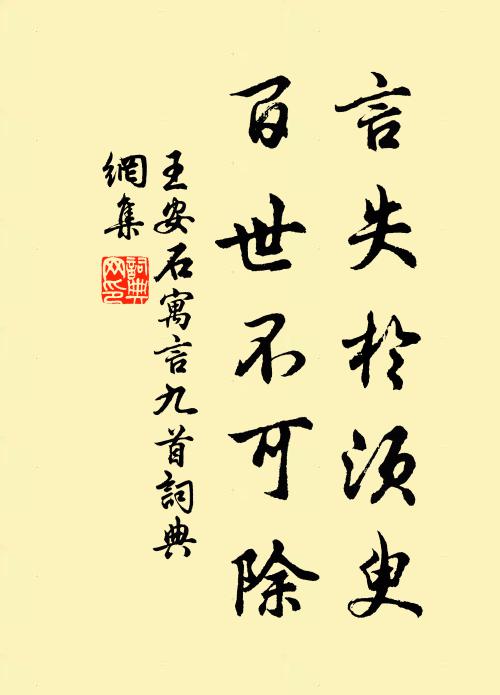 言失於須臾
百世不可除
王安石寓言九首詞典
網集
詞典網印